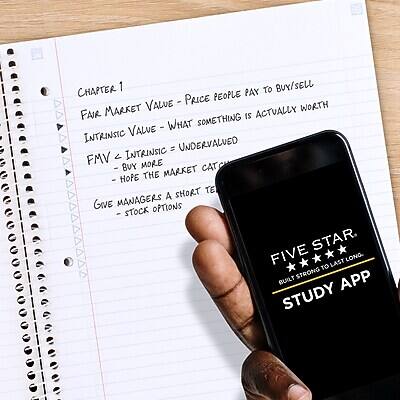 CHAPTER 1
FAIR MARKET VALUE - PRICE PEOPLE PAY TO BUY/SELL
INTRINSIC VALUE - WHAT SOMETHING IS ACTUALLY WORTH
FMV < INTRINSIC = UNDERVALUED
- BUY MORE
- HOPE THE MARKET
GIVE MANAGERS A SHORT
- STOCK OPTIONS
FIVE STAR®
★★★★★
BUILT STRONG TO LAST LONG.
STUDY APP